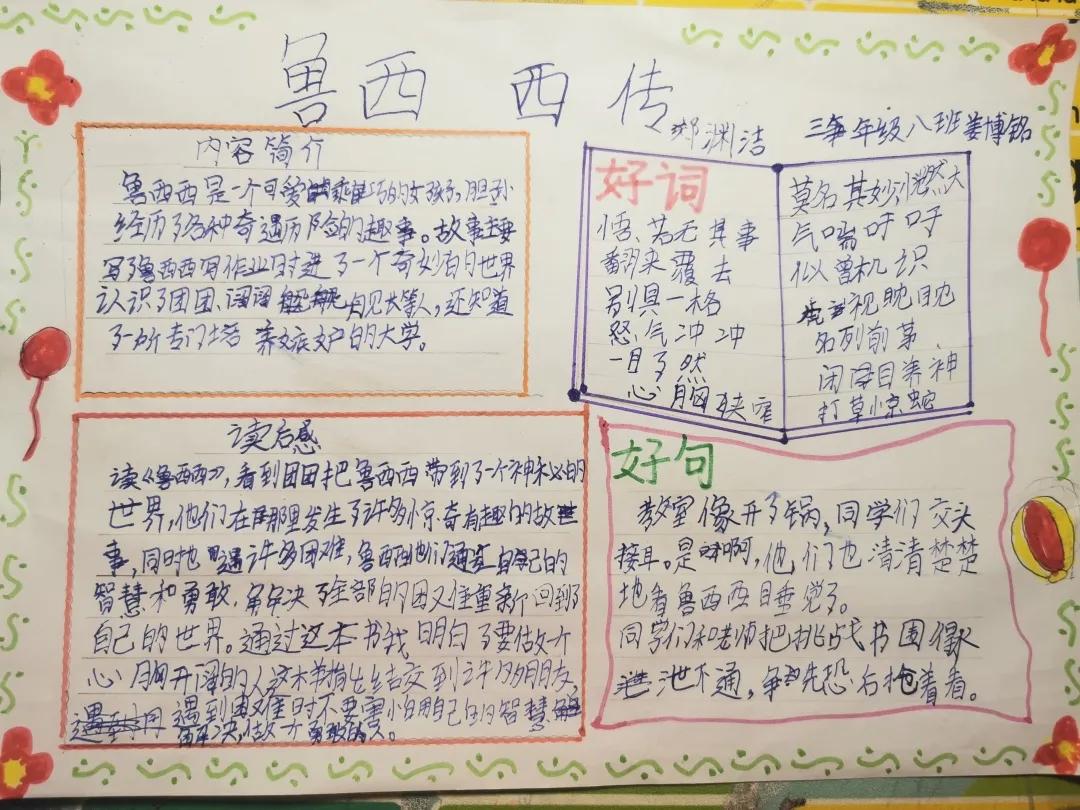 鲁西西传
郑渊洁
三年级八班姜博铭
内容简介
鲁西西是一个可爱乖巧的女孩子,胆小
经历了各种奇遇历险的趣事。故事主要
写了鲁西西写作业时进了一个奇妙的世界
认识了团团、
见大等人,还知道
了一所专门培养
的大学。
好词
悟、若无其事
翻来覆去
别具一格
怒气冲冲
一目了然
心胸狭窄
莫名其妙、恍然大
气喘吁吁
似曾相识
虎视眈眈
名列前茅
闭目养神
打草惊蛇
读后感
读《鲁西西》,看到团团把鲁西西带到了一个神秘的
世界,他们在那里发生了许多惊奇有趣的故
事,同时也遇许多困难,鲁西西他们通过自己的
智慧和勇敢,解决了全部的困难重新回到了
自己的世界。通过这本书我明白了要做个
心胸开阔的人这样才能结交到许多朋友
遇到困难时不要害怕用自己的智慧
解决,做个勇敢的人。
好句
教室像开了锅,同学们交头
接耳。是啊,他们也清清楚楚
地看鲁西西睡觉了。
同学们和老师把挑战书围得水
泄不通,争先恐后抢着看。